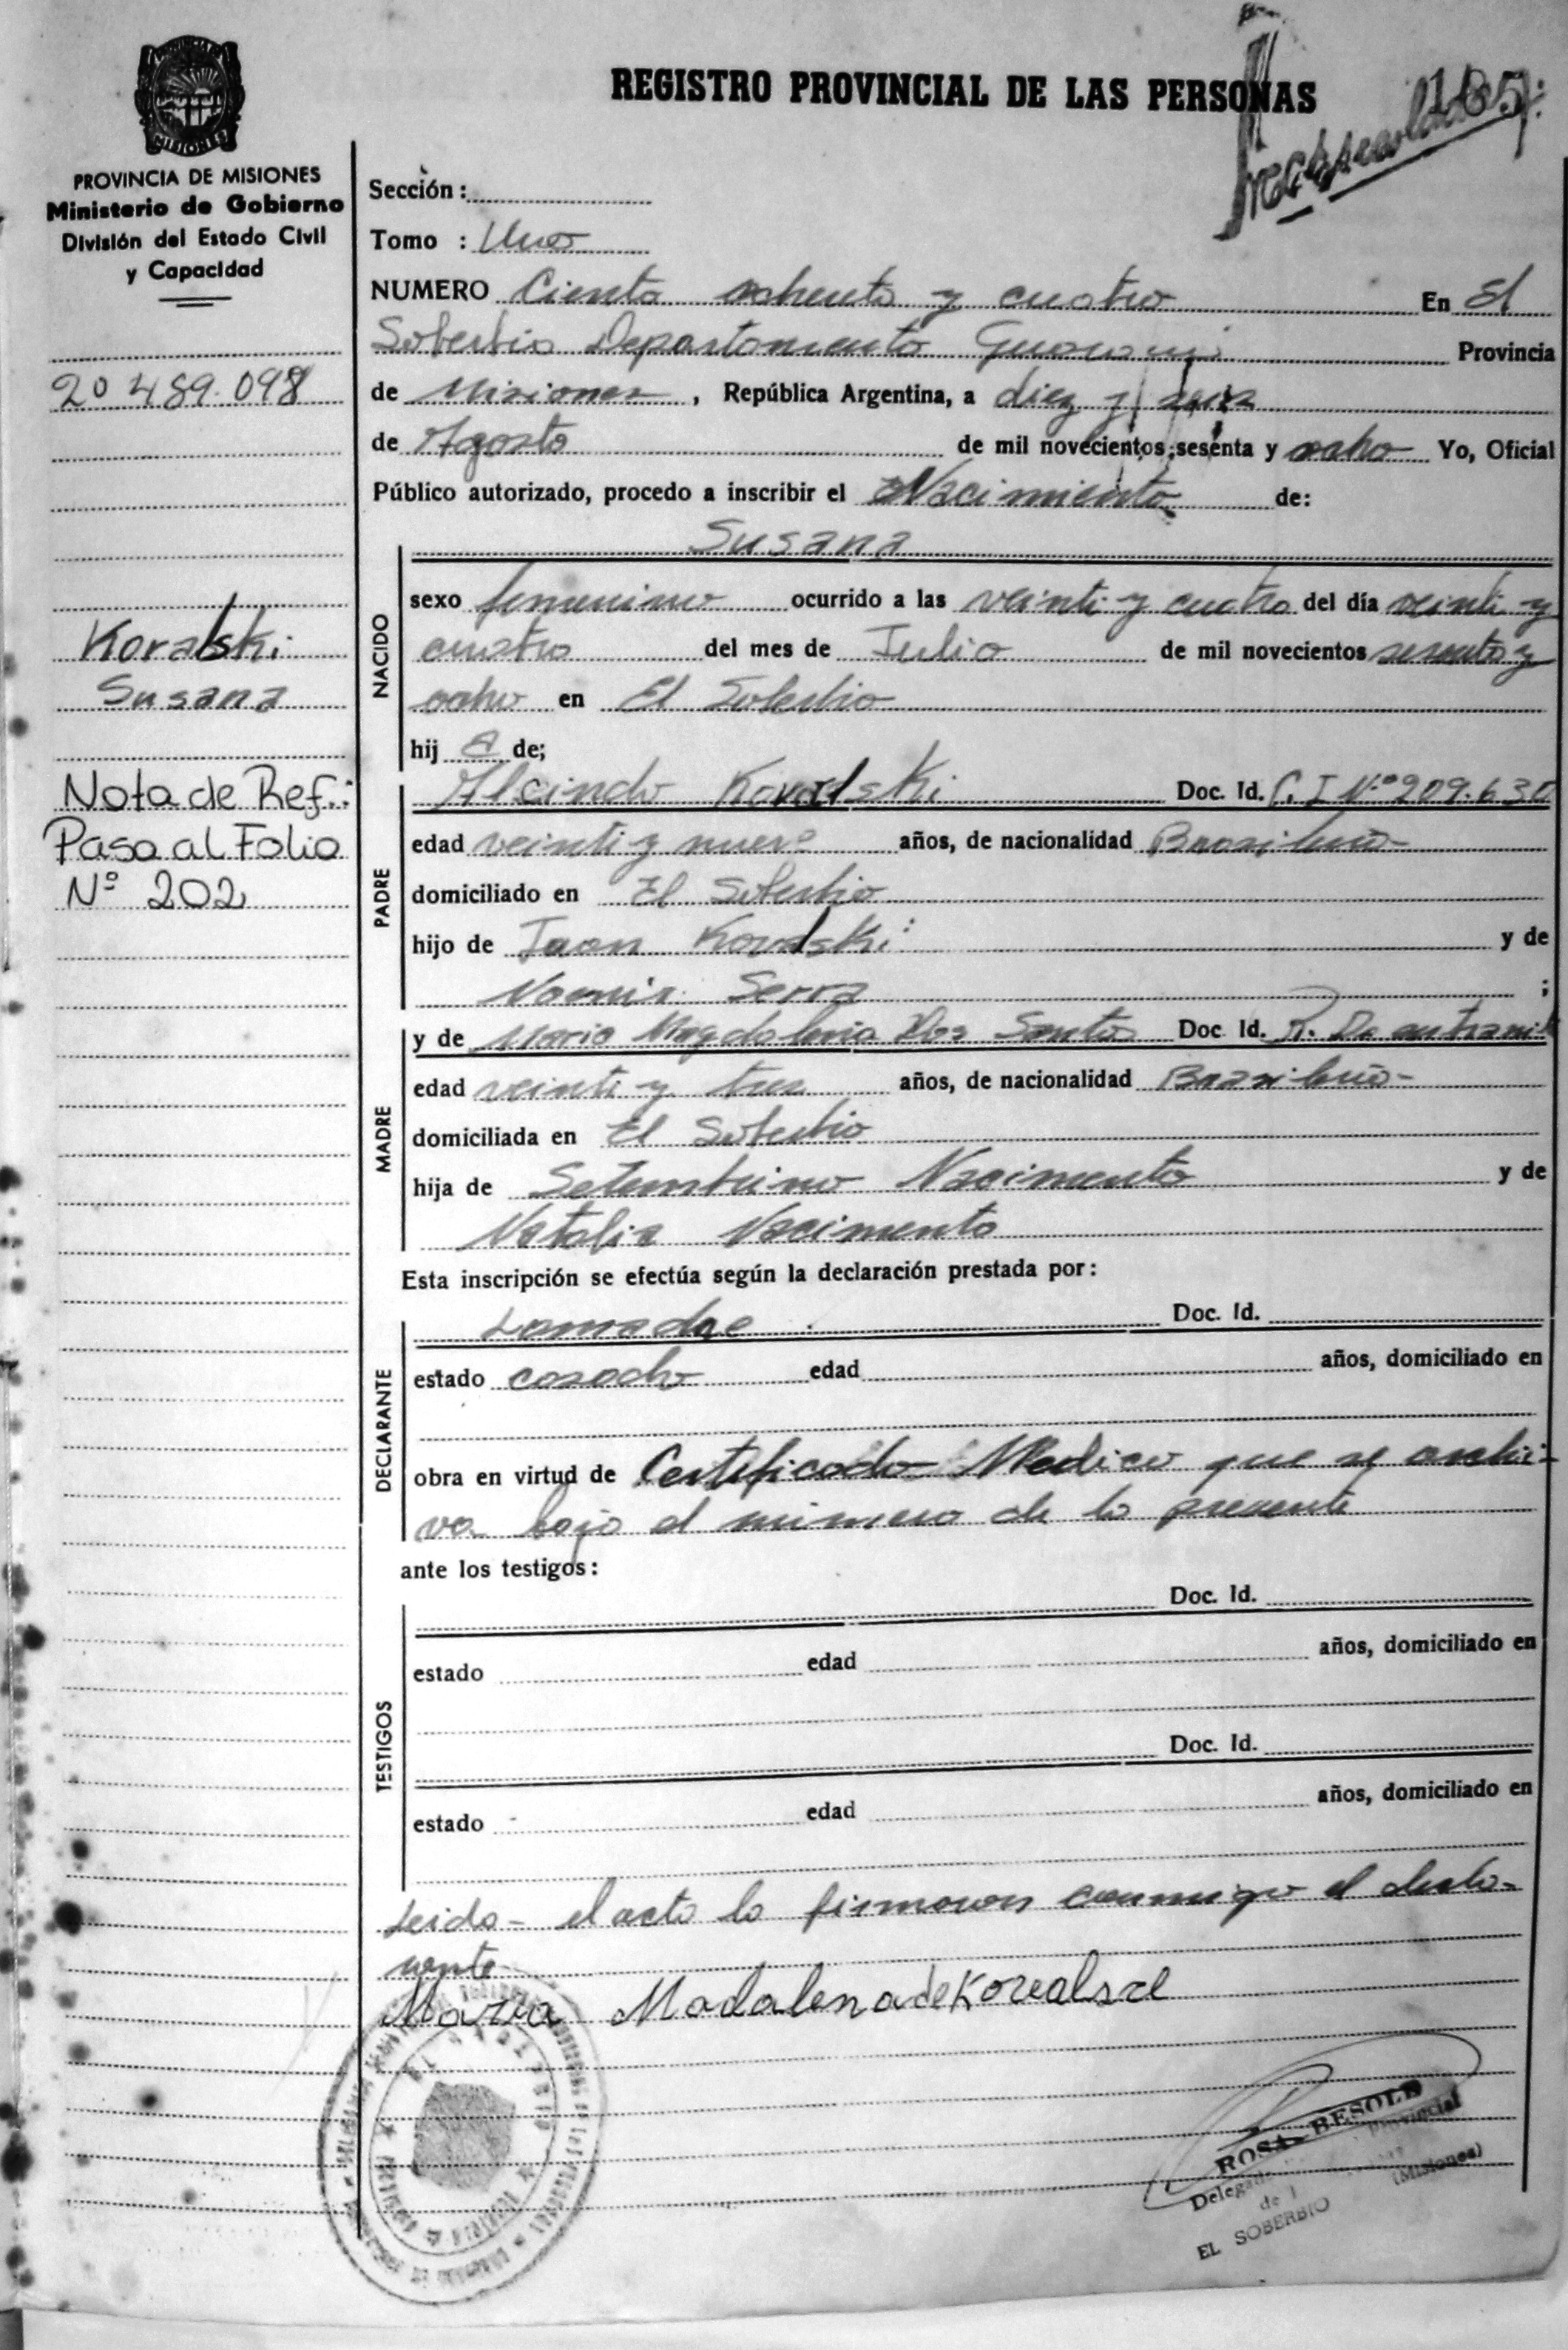 REGISTRO PROVINCIAL DE LAS PERSONAS
185
PROVINCIA DE MISIONES
Ministerio de Gobierno
División del Estado Civil
y Capacidad
20 489.098
Kovalski
Susana
Nota de Ref.:
Pasa al Folio
Nº 202
Sección:
Tomo : Uno
NUMERO Ciento ochento y cuatro En El
Soberbio Departamento Guarani Provincia
de Misiones, República Argentina, a diez y seis
de Agosto de mil novecientos sesenta y ocho Yo, Oficial
Público autorizado, procedo a inscribir el Nacimiento de:
Susana
NACIDO
sexo femenino ocurrido a las veinti y cuatro del día veinti y
cuatro del mes de Julio de mil novecientos sesenta y
ocho en El Soberbio
hij a de;
PADRE
Alcindo Kovalski Doc. Id. C. I Nº 209.630
edad veinti y nueve años, de nacionalidad Brasileño-
domiciliado en El Soberbio
hijo de Juan Kovalski y de
Serra ;
MADRE
y de Maria Magdalena Dos Santos Doc. Id.
edad veinti y tres años, de nacionalidad Brasileño-
domiciliada en El Soberbio
hija de Setembrino Nacimento y de
Natalia Nacimento
Esta inscripción se efectúa según la declaración prestada por:
DECLARANTE
La madre Doc. Id.
estado casado edad años, domiciliado en
obra en virtud de Certificado Medico que se archi-
va bajo el numero de la presente
ante los testigos:
TESTIGOS
Doc. Id.
estado edad años, domiciliado en
Doc. Id.
estado edad años, domiciliado en
Leida- el acta la firmaron conmigo el decla-
rante
Maria Madalena de Kovalski
ROSA BESOLD
Delegada Provincial
de (Misiones)
EL SOBERBIO